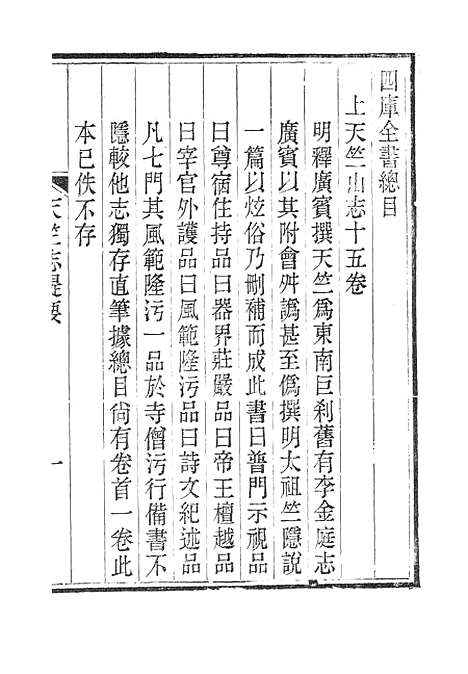 四庫全書總目
上天竺山志十五卷
明釋廣賓撰天竺爲東南巨刹舊有李金庭志
廣賓以其附會舛譌甚至僞撰明太祖竺隱說
一篇以炫俗乃刪補而成此書曰普門示視品
曰尊宿住持品曰器界莊嚴品曰帝王檀越品
曰宰官外護品曰風範隆污品曰詩文紀述品
凡七門其風範隆污一品於寺僧污行備書不
隱較他志獨存直筆據總目尙有卷首一卷此
本已佚不存
天竺志提要
一